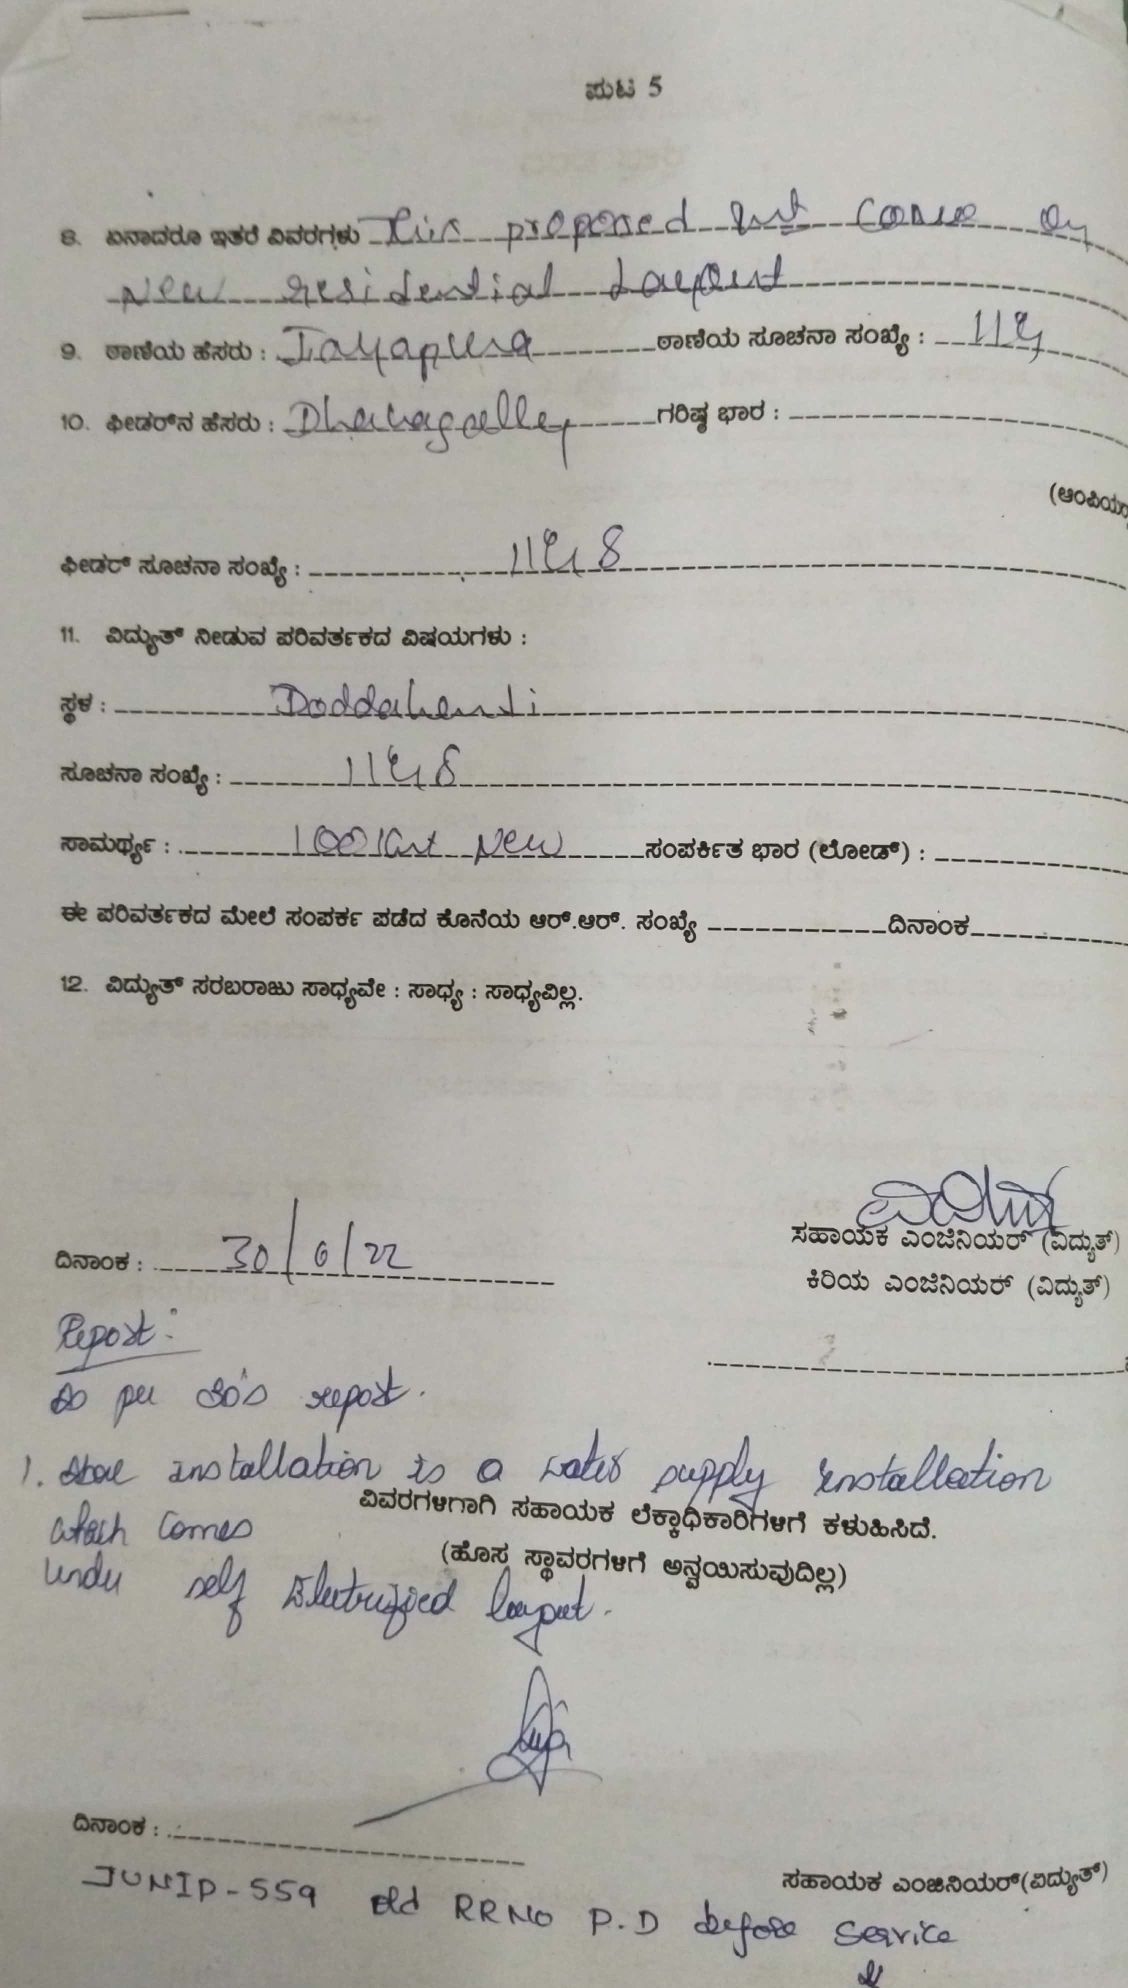 ಪುಟ 5
8. ಏನಾದರೂ ಇತರೆ ವಿವರಗಳು This proposed come on
New residential Layout
9. ಠಾಣೆಯ ಹೆಸರು : Jayapura ಠಾಣೆಯ ಸೂಚನಾ ಸಂಖ್ಯೆ :
10. ಫೀಡರ್‌ನ ಹೆಸರು : Dhanagalley ಗರಿಷ್ಠ ಭಾರ :
(ಆಂಪಿಯ
ಫೀಡರ್ ಸೂಚನಾ ಸಂಖ್ಯೆ :
11. ವಿದ್ಯುತ್ ನೀಡುವ ಪರಿವರ್ತಕದ ವಿಷಯಗಳು :
ಸ್ಥಳ :
ಸೂಚನಾ ಸಂಖ್ಯೆ :
ಸಾಮರ್ಥ್ಯ : 100 New ಸಂಪರ್ಕಿತ ಭಾರ (ಲೋಡ್) :
ಈ ಪರಿವರ್ತಕದ ಮೇಲೆ ಸಂಪರ್ಕ ಪಡೆದ ಕೊನೆಯ ಆರ್.ಆರ್. ಸಂಖ್ಯೆ ದಿನಾಂಕ
12. ವಿದ್ಯುತ್ ಸರಬರಾಜು ಸಾಧ್ಯವೇ : ಸಾಧ್ಯ : ಸಾಧ್ಯವಿಲ್ಲ.
ಸಹಾಯಕ ಎಂಜಿನಿಯರ್ (ವಿದ್ಯುತ್)
ದಿನಾಂಕ : 30/6/22
ಕಿರಿಯ ಎಂಜಿನಿಯರ್ (ವಿದ್ಯುತ್)
Report:
As per SO's report.
1. installation is a water supply installation
ವಿವರಗಳಿಗಾಗಿ ಸಹಾಯಕ ಲೆಕ್ಕಾಧಿಕಾರಿಗಳಿಗೆ ಕಳುಹಿಸಿದೆ.
which comes
(ಹೊಸ ಸ್ಥಾವರಗಳಿಗೆ ಅನ್ವಯಿಸುವುದಿಲ್ಲ)
under self Electrified layout.
ದಿನಾಂಕ :
ಸಹಾಯಕ ಎಂಜಿನಿಯರ್(ವಿದ್ಯುತ್)
JUNIP-559 old RRNO P.D before service